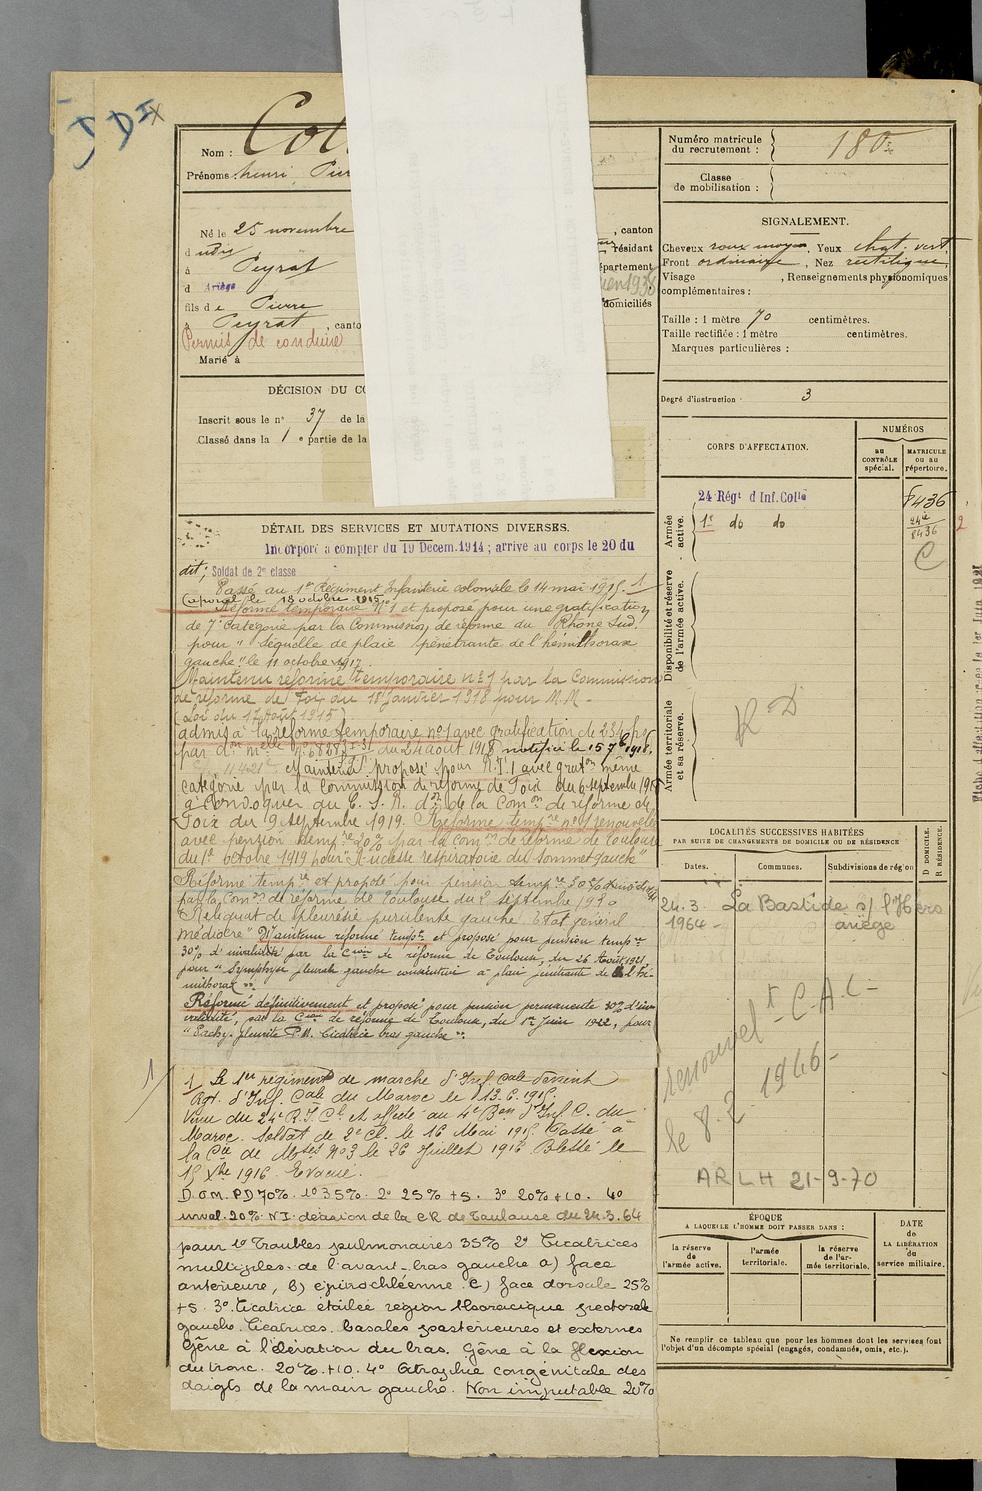 Nom :
Prénoms henri Pier
Né le 25 novembre
à Peyrat
d Ariège
fils de Pierre
à Peyrat , canto
Permis de conduire
Marié à
, canton
résidant
épartement
domiciliés
DÉCISION DU CO
Inscrit sous le n° 37 de la
Classé dans la 1e partie de la
DÉTAIL DES SERVICES ET MUTATIONS DIVERSES.
Incorporé à compter du 19 Décem.1914 ; arrivé au corps le 20 du
dit ; Soldat de 2e classe
Passé au 1er Régiment Infanterie coloniale le 14 mai 1915. 1
Caporal le 18 octobre 1915
Réformé temporaire N°1 et proposé pour une gratification
de 7e catégorie par la Commission de réforme du Rhône Sud.
pour "Séquelle de plaie pénétrante de l'hémithorax
gauche" le 11 octobre 1917.
Maintenu réformé temporaire n°1 par la Commission
de réforme de Foix du 18 Janvier 1918 pour M.M -
(Loi du 17 Août 1915)
admis à la réforme temporaire n°1 avec gratification de 234 frs
du 24 août 1918 notifié le 15 7bre 1918.
Maintenu proposé pour R.T.1 avec graton même
catégorie par la commission de réforme de Foix du 6 septembre
à convoquer au C.S.R. don de la Comon de réforme de
Foix du 9 septembre 1919. Réforme tempre n°1 renouvelée
avec pension tempre 20% par la Comon de réforme de Toulouse
du 1er octobre 1919 pour "Rudesse respiratoire du sommet gauche"
Réformé tempre et proposé pour pension tempre 30%
par la Comon de réforme de Toulouse du 2 septembre 1920
"Reliquat de pleurésie purulente gauche Etat général
médiocre" Maintenu réformé tempre et proposé pour pension tempre
30% d'invalidité par la Cion de réforme de Toulouse, du 26 Août 1921,
pour "Symphyse pleurale gauche consécutive à plaie pénétrante de l'hé-
mithorax".
Réformé définitivement et proposé pour pension permanente 30% d'in
validité, par la Cion de réforme de Toulouse, du 1er Juin 1922, pour
"Pachy-pleurite P.M. Cicatrice bras gauche".
1 Le 1er régiment de marche d'Inf. Cale devient
Rgt. d'Inf. Cale du Maroc le 13.6.1915.
Venu du 24e R.I.Cl. et affecté au 4e Bon d'Inf C. du
Maroc. Soldat de 2e cl. le 16 Mai 1915. Passé à
la Cie de Mses N°3 le 26 Juillet 1916 Blessé le
15 Xbre 1916 Evacué.
D.O.M. PD 70%. 1° 35%. 2° 25% +5. 3° 20% +10. 4°
inval. 20% N.I. décision de la CR de Toulouse du 24.3.64
pour 1° Troubles pulmonaires 35% 2° Cicatrices
multiples de l'avant-bras gauche a) face
antérieure, b) épitrochléenne c) face dorsale 25%
+5. 3° Cicatrice étoilée région thoracique pectorale
gauche. Cicatrices basales postérieures et externes
Gêne à l'élévation du bras. Gêne à la flexion
du tronc. 20% +10. 4° Atrophie congénitale des
doigts de la main gauche. Non imputable 20%
Numéro matricule
du recrutement : 180
Classe
de mobilisation :
SIGNALEMENT.
Cheveux roux moyen, Yeux chat. vert
Front ordinaire, Nez rectiligne,
Visage , Renseignements physionomiques
complémentaires :
Taille : 1 mètre 70 centimètres.
Taille rectifiée : 1 mètre centimètres.
Marques particulières :
Degré d'instruction 3
CORPS D'AFFECTATION.
NUMÉROS
au
CONTRÔLE
spécial.
MATRICULE
ou au
répertoire.
Armée
active.
24 Régt d'Inf. Colle
8436
1er do do
24e
8436
C
2
Disponibilité et réserve
de l'armée active.
Armée territoriale
et sa réserve.
R D
LOCALITÉS SUCCESSIVES HABITÉES
PAR SUITE DE CHANGEMENTS DE DOMICILE OU DE RÉSIDENCE
Dates.
Communes.
Subdivisions de région
D. DOMICILE.
R. RÉSIDENCE.
24.3. La Bastide s/ l'Hers
1964 ariège
renouvelt C.A.C
le 8.2.1966 -
AR LH 21-9-70
ÉPOQUE
A LAQUELLE L'HOMME DOIT PASSER DANS :
la réserve
de
l'armée active.
l'armée
territoriale.
la réserve
de l'ar-
mée territoriale.
DATE
de
LA LIBÉRATION
du
service militaire.
Ne remplir ce tableau que pour les hommes dont les services font
l'objet d'un décompte spécial (engagés, condamnés, omis, etc.).